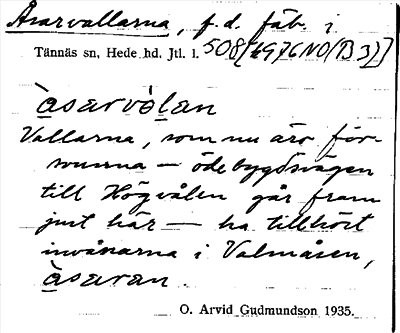 Åsarvallarna, f.d. fäb. i
Tännäs sn, Hede hd. Jtl. l. 508[19C7CNO(B3)]
å̀sarvə̀lan
Vallarna, som nu äro för-
svunna — ödebygdsvägen
till Högvålen går fram
just här — ha tillhört
invånarna i Valmåsen,
å̀saran.
O. Arvid Gudmundson 1935.